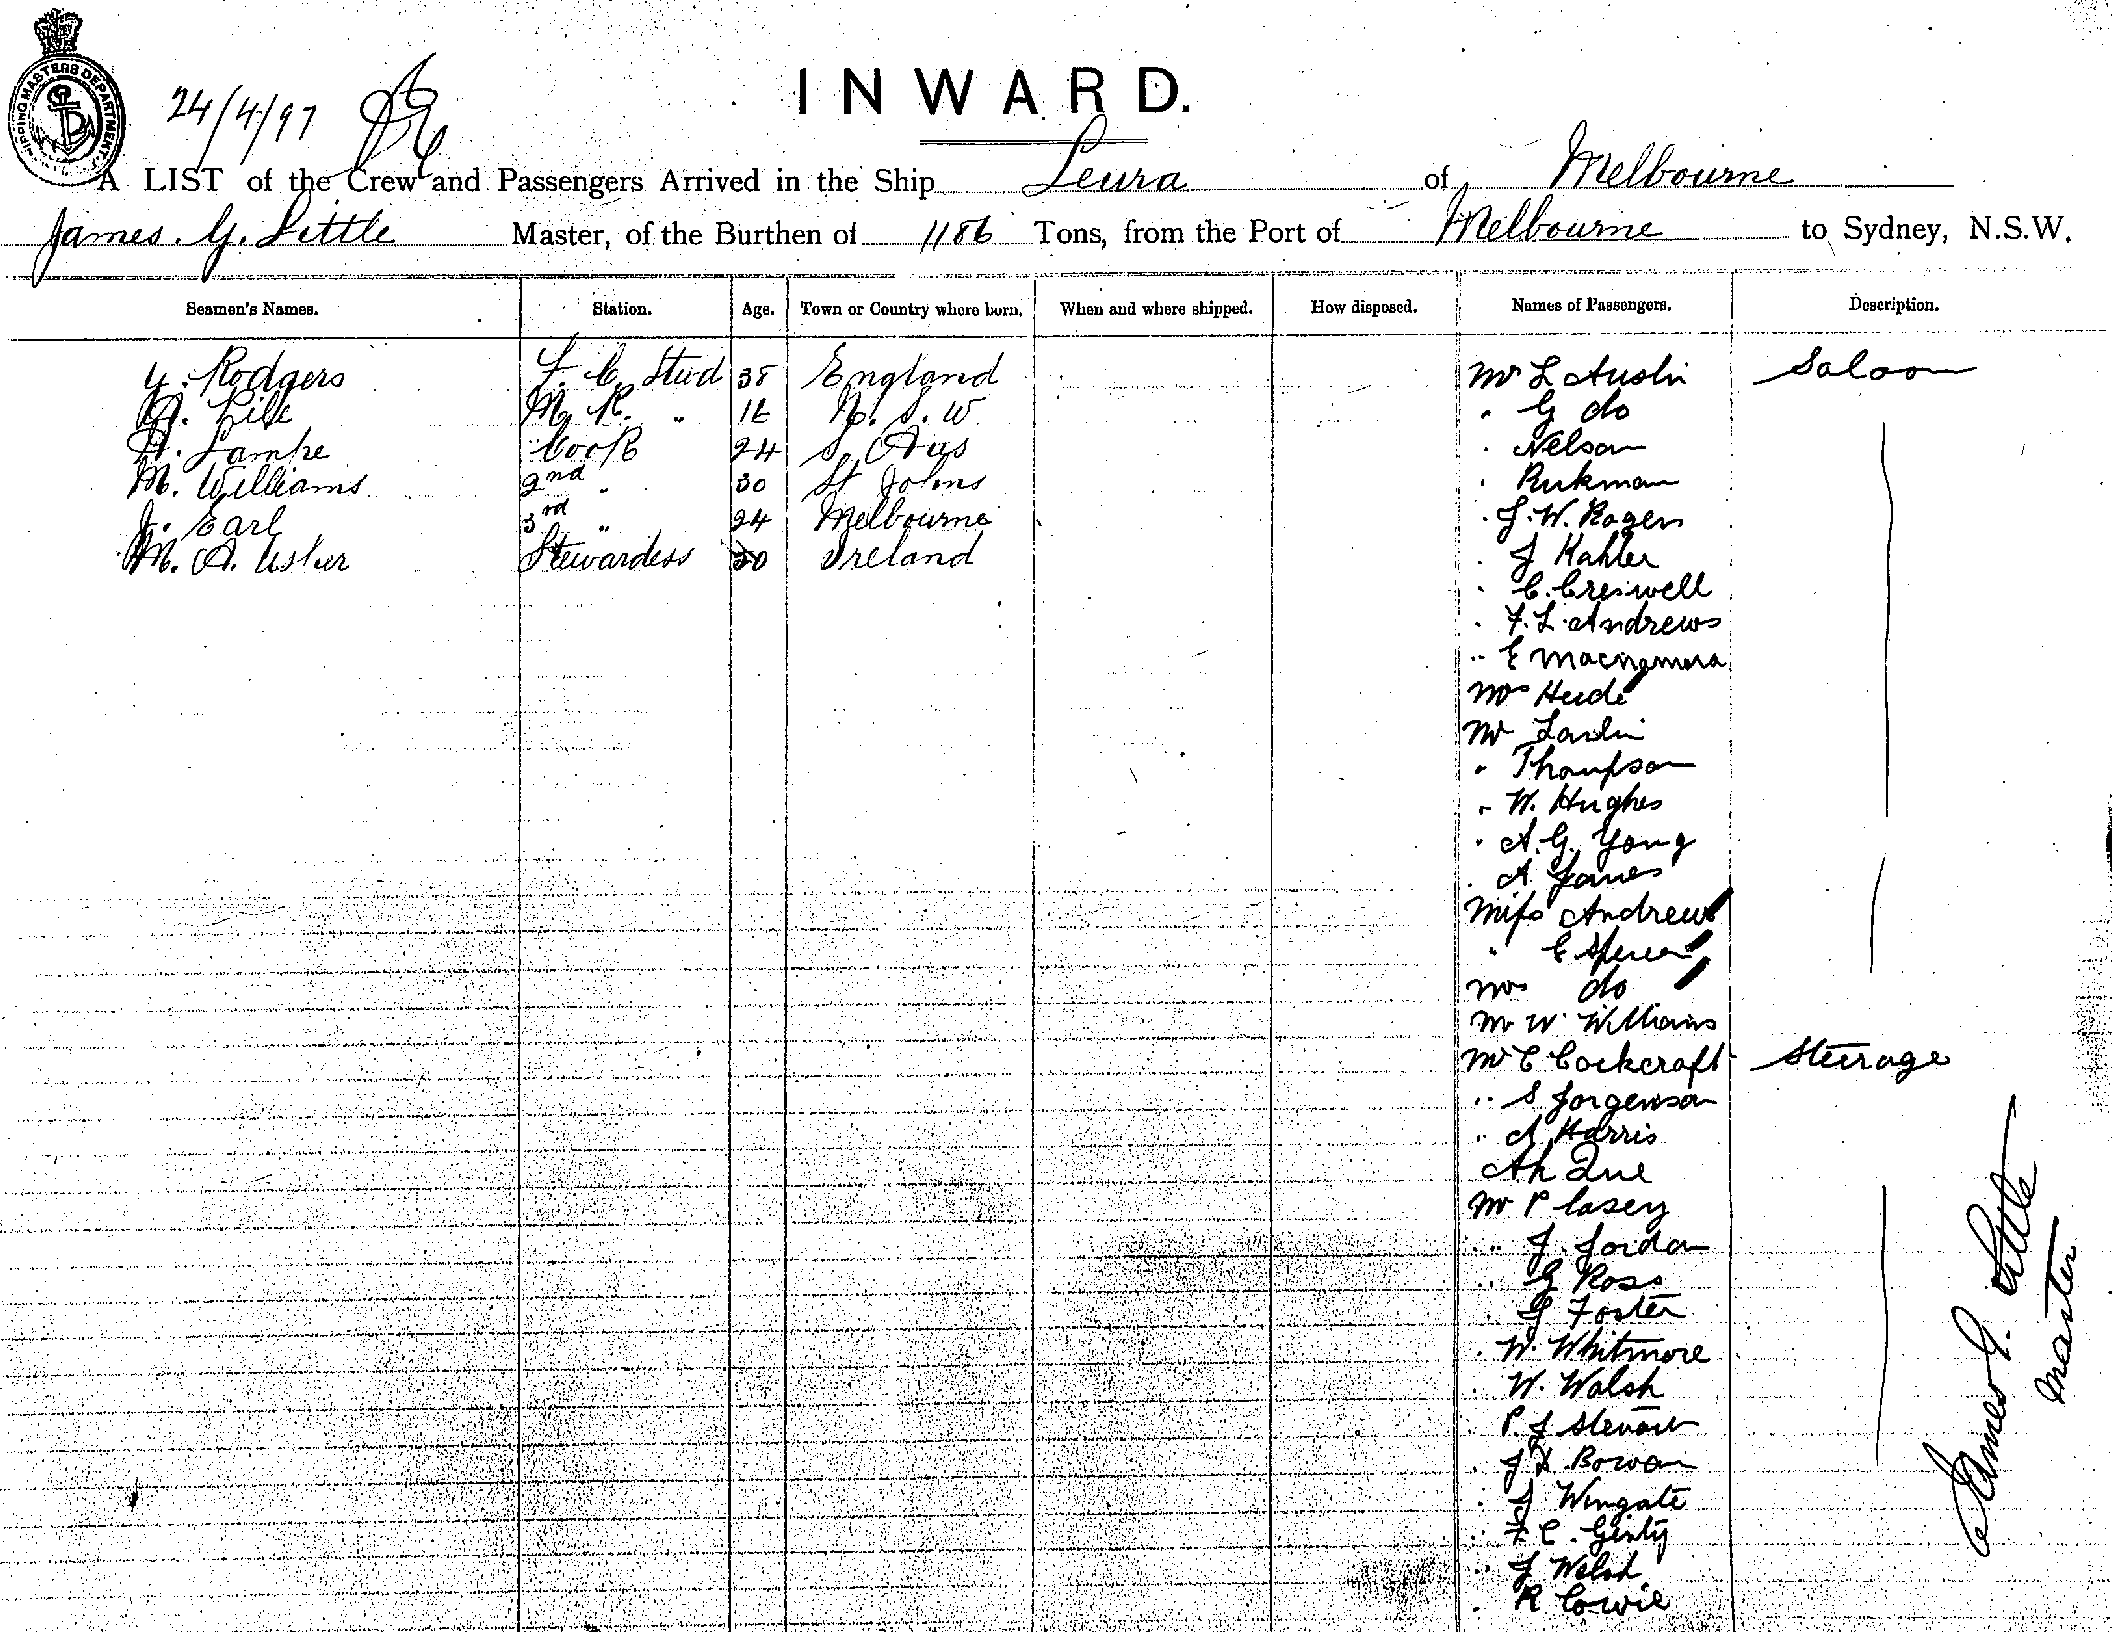 SHIPPING MASTERS DEPARTMENT
24/4/97
INWARD.
A LIST of the Crew and Passengers Arrived in the Ship Leura of Melbourne
James G. Little Master, of the Burthen of 1186 Tons, from the Port of Melbourne to Sydney, N.S.W.
Seamen's Names. Station. Age. Town or Country where born. When and where shipped. How disposed. Names of Passengers. Description.
Rodgers F. C. Stwd 38 England Mr L Austin Saloon
M. R. " 16 N. S. W " G do
Lampe Cook 24 S. Aus " Nelson
M. Williams 2nd " 30 St Johns " Rukman
J. Earl 3rd " 24 Melbourne " J. W. Rogers
M. A. Usher Stewardess 30 Ireland " J Kahler
" C. Creswell
" F. L. Andrews
" E Macnamara
Mrs
Mr
" Thompson
" W. Hughes
" A. G. Young
" A. James
Miss Andrews
" E Spencer
Mrs do
Mr W Williams
Mr C Cockcraft Steerage
" S Jorgenson
" A Harris
Ah Que
Mr P Casey
" J. Jordan
" G Ross
" G Foster
" W. Whitmore
" W. Walsh
" P. J Stewart
" J. H. Bowan
" J Wingate
" F C. Ginty
" J Welsh
" R Cowie
James G. Little
Master